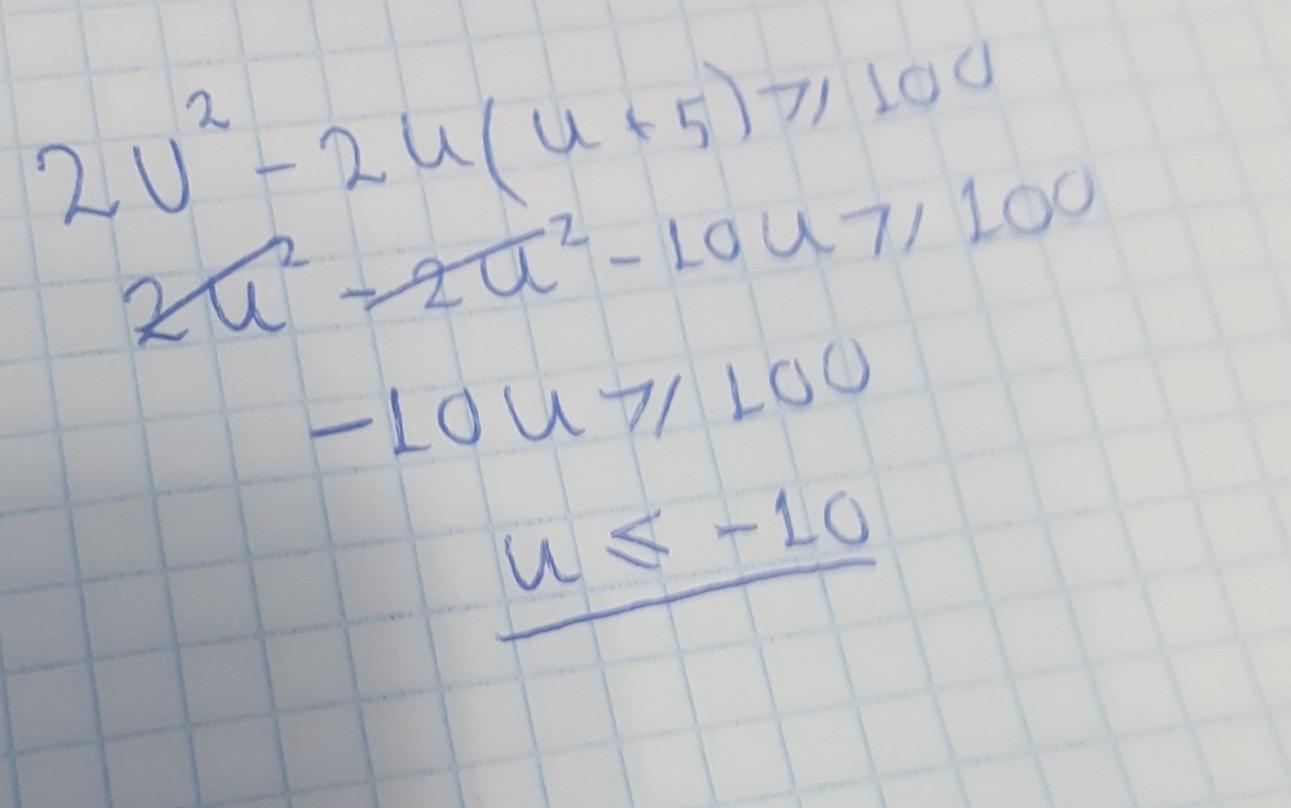 2u² - 2u(u + 5) ⩾ 100
2u² - 2u² - 10u ⩾ 100
-10u ⩾ 100
u ⩽ -10